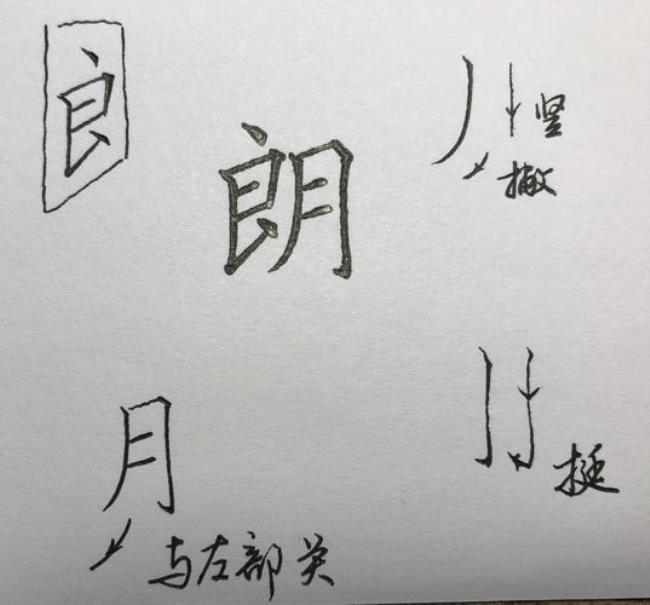 良
朗
竖
撇
月
挺
与左部关